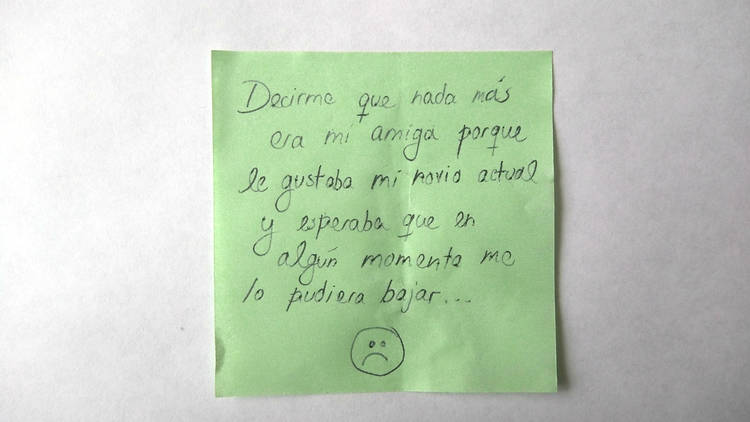 Decirme que nada más
era mi amiga porque
le gustaba mi novio actual
y esperaba que en
algún momento me
lo pudiera bajar...